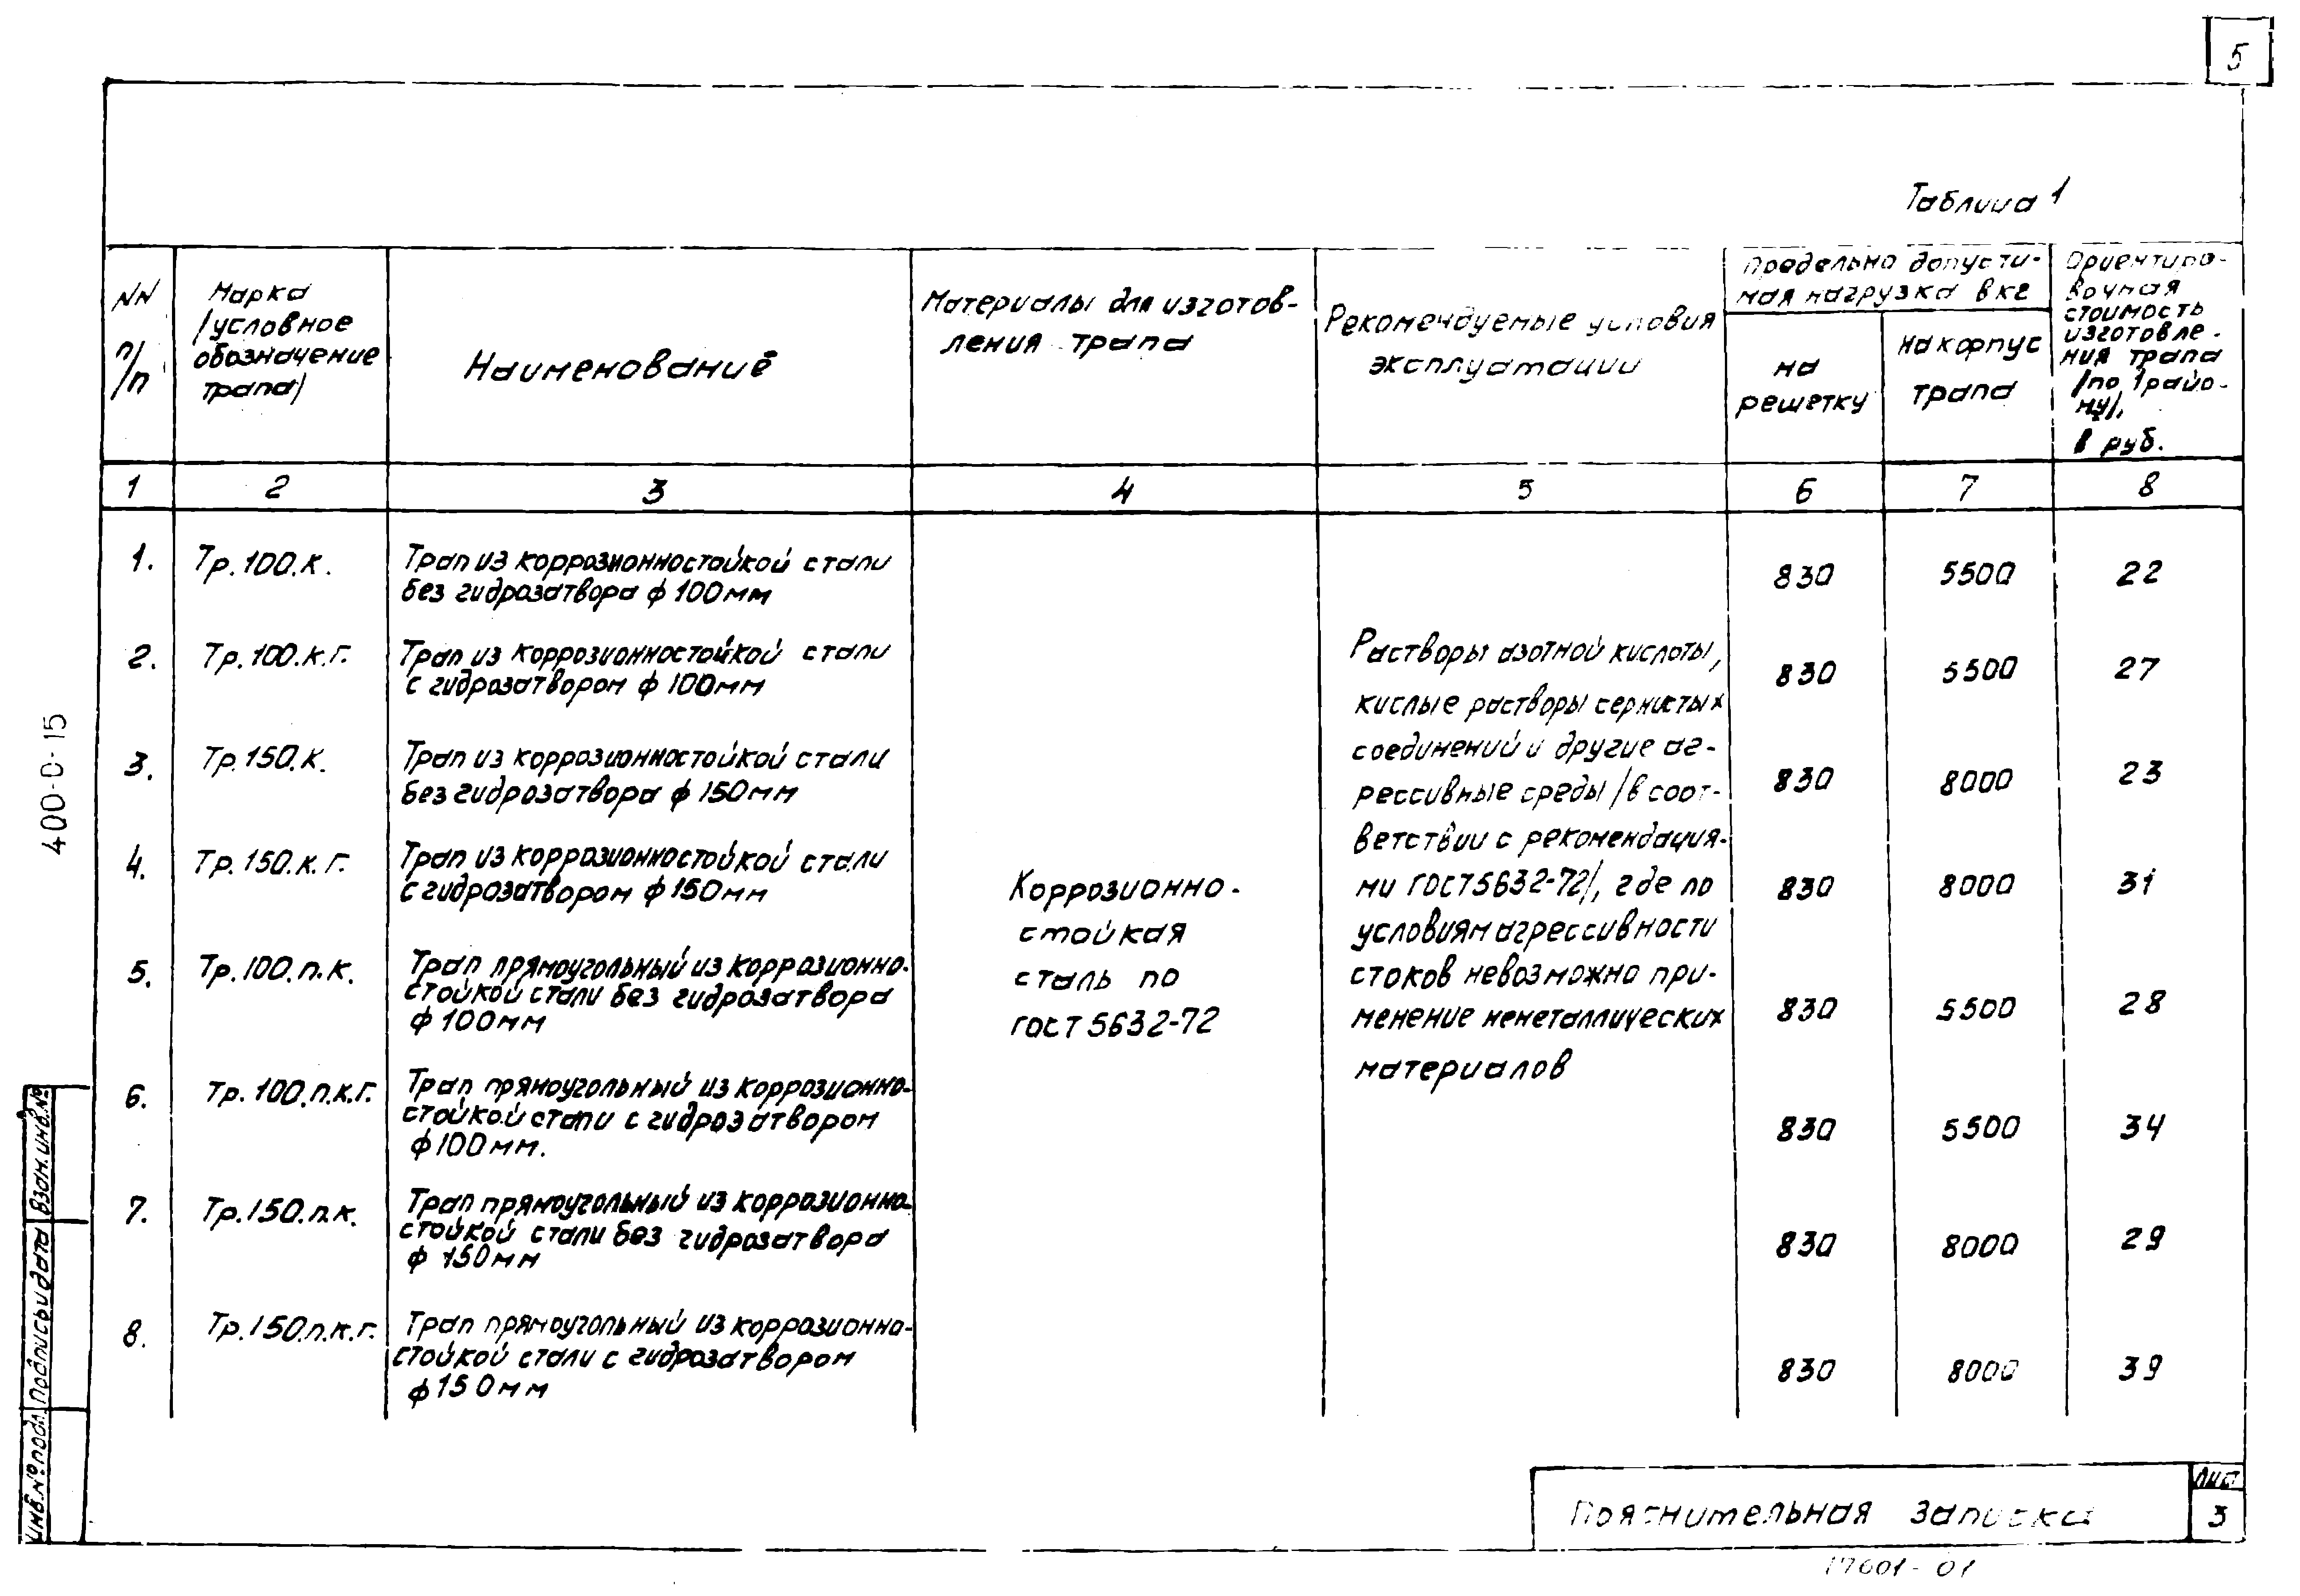 5
Таблица 1
NN
п/п
Марка
/условное
обозначение
трапа/
Наименование
Материалы для изготов-
ления трапа
Рекомендуемые условия
эксплуатации
Предельно допусти-
мая нагрузка в кг
на
решетку
на корпус
трапа
Ориентиро-
вочная
стоимость
изготовле-
ния трапа
/по 1 райо-
ну/,
в руб.
1 2 3 4 5 6 7 8
1. Тр.100.к. Трап из коррозионностойкой стали
без гидрозатвора ф 100мм
830 5500 22
2. Тр.100.к.г. Трап из коррозионностойкой стали
с гидрозатвором ф 100мм
830 5500 27
3. Тр.150.к. Трап из коррозионностойкой стали
без гидрозатвора ф 150мм
830 8000 23
4. Тр.150.к.г. Трап из коррозионностойкой стали
с гидрозатвором ф 150мм
830 8000 31
5. Тр.100.п.к. Трап прямоугольный из коррозионно-
стойкой стали без гидрозатвора
ф 100мм
830 5500 28
6. Тр.100.п.к.г. Трап прямоугольный из коррозионно-
стойкой стали с гидрозатвором
ф 100мм.
830 5500 34
7. Тр.150.п.к. Трап прямоугольный из коррозионно-
стойкой стали без гидрозатвора
ф 150мм
830 8000 29
8. Тр.150.п.к.г. Трап прямоугольный из коррозионно-
стойкой стали с гидрозатвором
ф 150мм
830 8000 39
Коррозионно-
стойкая
сталь по
ГОСТ 5632-72
Растворы азотной кислоты,
кислые растворы сернистых
соединений и другие аг-
рессивные среды /в соот-
ветствии с рекомендация-
ми ГОСТ 5632-72/, где по
условиям агрессивности
стоков невозможно при-
менение неметаллических
материалов
400-0-15
Инв.№ подл. Подпись и дата Взам.инв.№
Пояснительная записка
Лист
3
17601-01